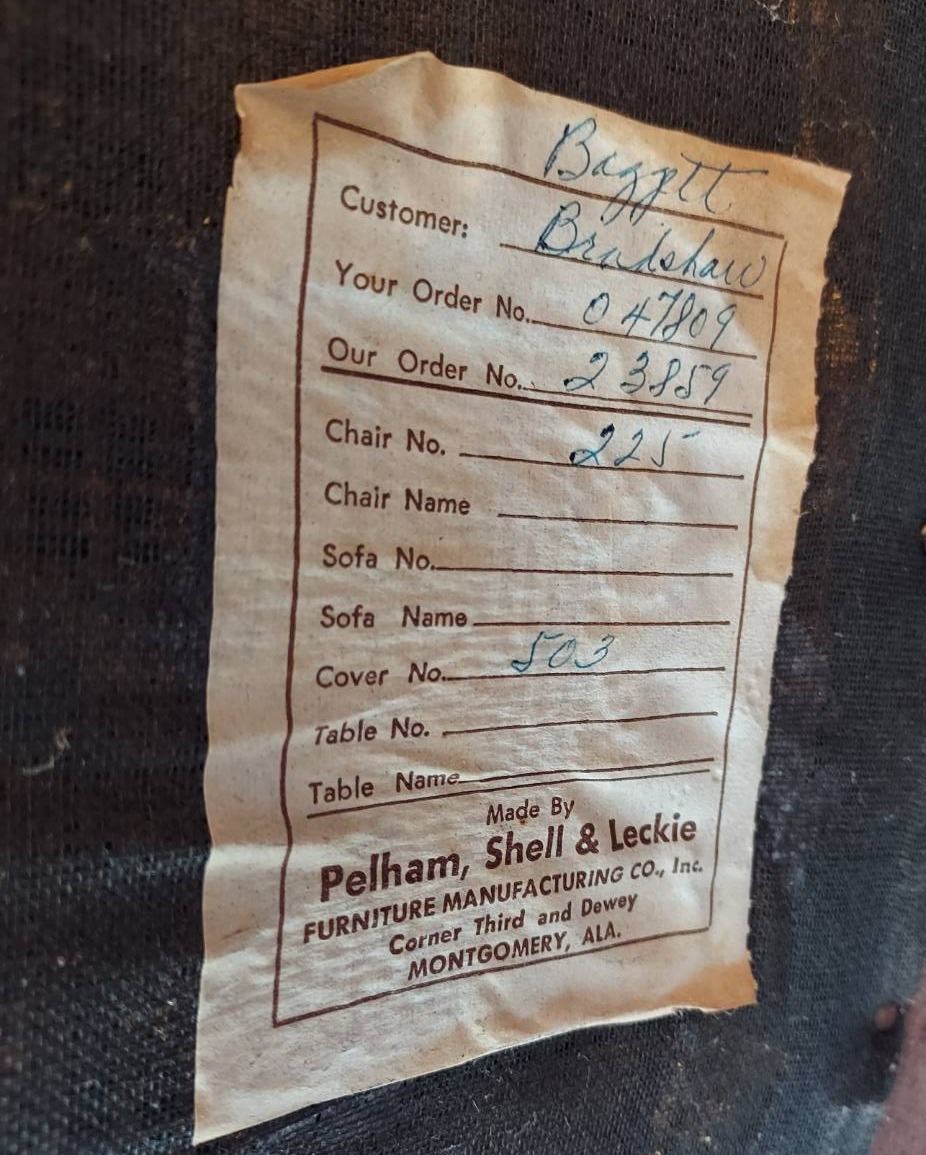 Baggett
Customer: Bradshaw
Your Order No. 047809
Our Order No. 23859
Chair No. 225
Chair Name
Sofa No.
Sofa Name
Cover No. 503
Table No.
Table Name
Made By
Pelham, Shell & Leckie
FURNITURE MANUFACTURING CO., Inc.
Corner Third and Dewey
MONTGOMERY, ALA.